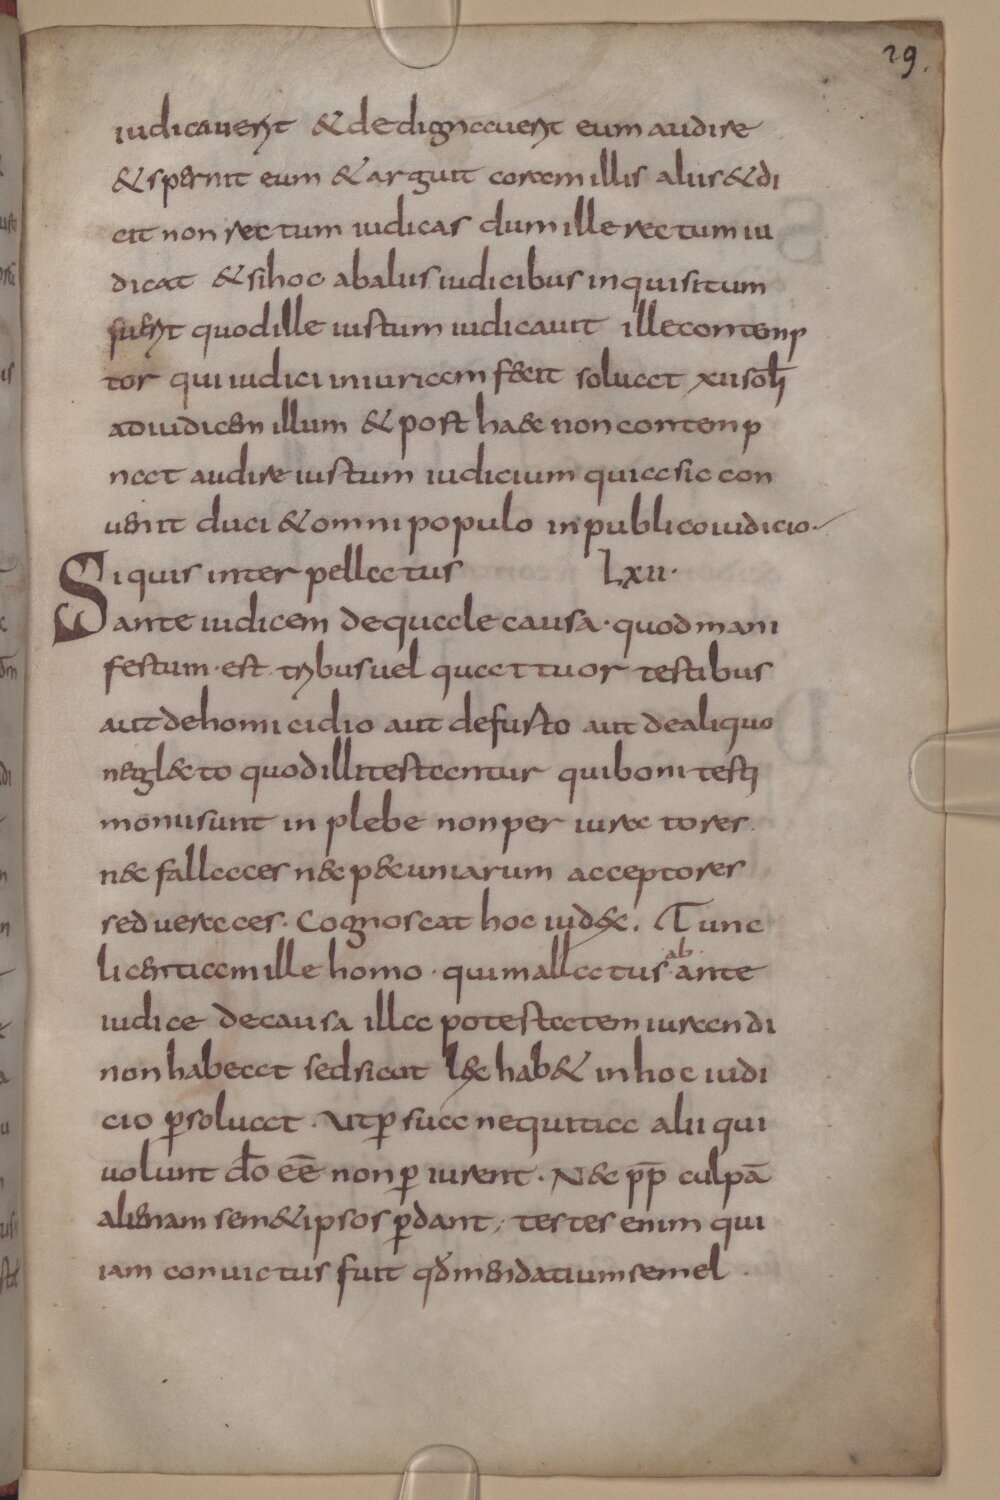 29.
iudicauerit & dedignauerit eum audire
& spernit eum & arguit coram illis aliis & di
cit non rectum iudicas dum ille rectum iu
dicat & si hoc ab aliis iudicibus inquisitum
fuerit quod ille iustum iudicauit ille contemp
tor qui iudici iniuriam fecit soluat xii sol
ad iudicem illum & post haec non contemp
nat audire iustum iudicium quia sic con
uenit duci & omni populo in publico iudicio.
Si quis interpellatus Lxii.
ante iudicem de quale causa. quod mani
festum. est tribus uel quattuor testibus
aut de homicidio aut de fusto aut de aliquo
negl&to quod illi testantur qui boni testi
moni sunt in plebe non periuratores
nec fallaces nec p&cuniarum acceptores
sed ueraces. Cognoscat hoc iudex. Tunc
licentiam ille homo. qui mallatus ab ante
iudice de causa illa potestatem iurandi
non habeat sed sicut lex hab& in hoc iudi
cio p̄soluat. Ut p̄ sua nequitia alii qui
uolunt dō eē non p̄iurent. Nec pp̄ culpā
alienam sem&ipsos p̄dant, testes enim qui
iam conuictus fuit qd̄ mendatium semel